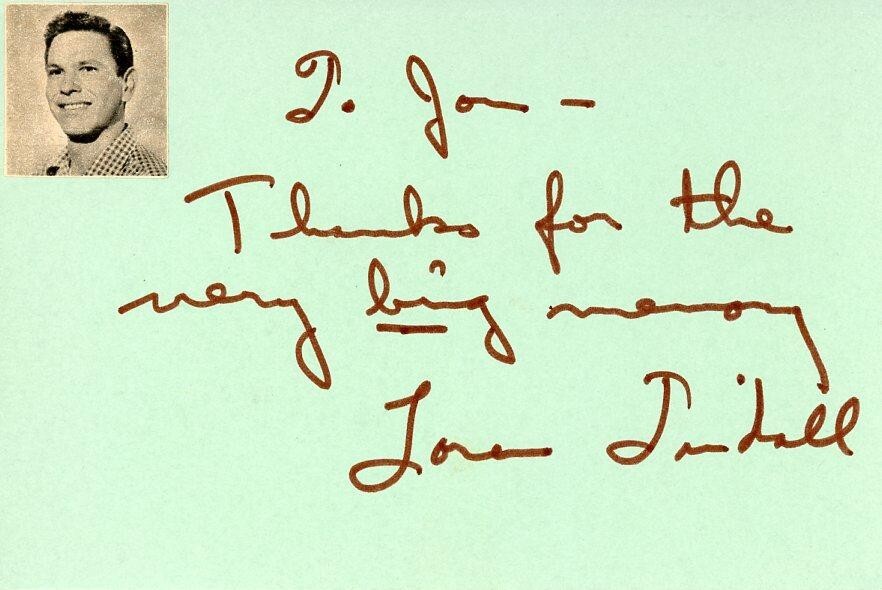 To Jon -
Thanks for the
very big memory
Loren Tindall